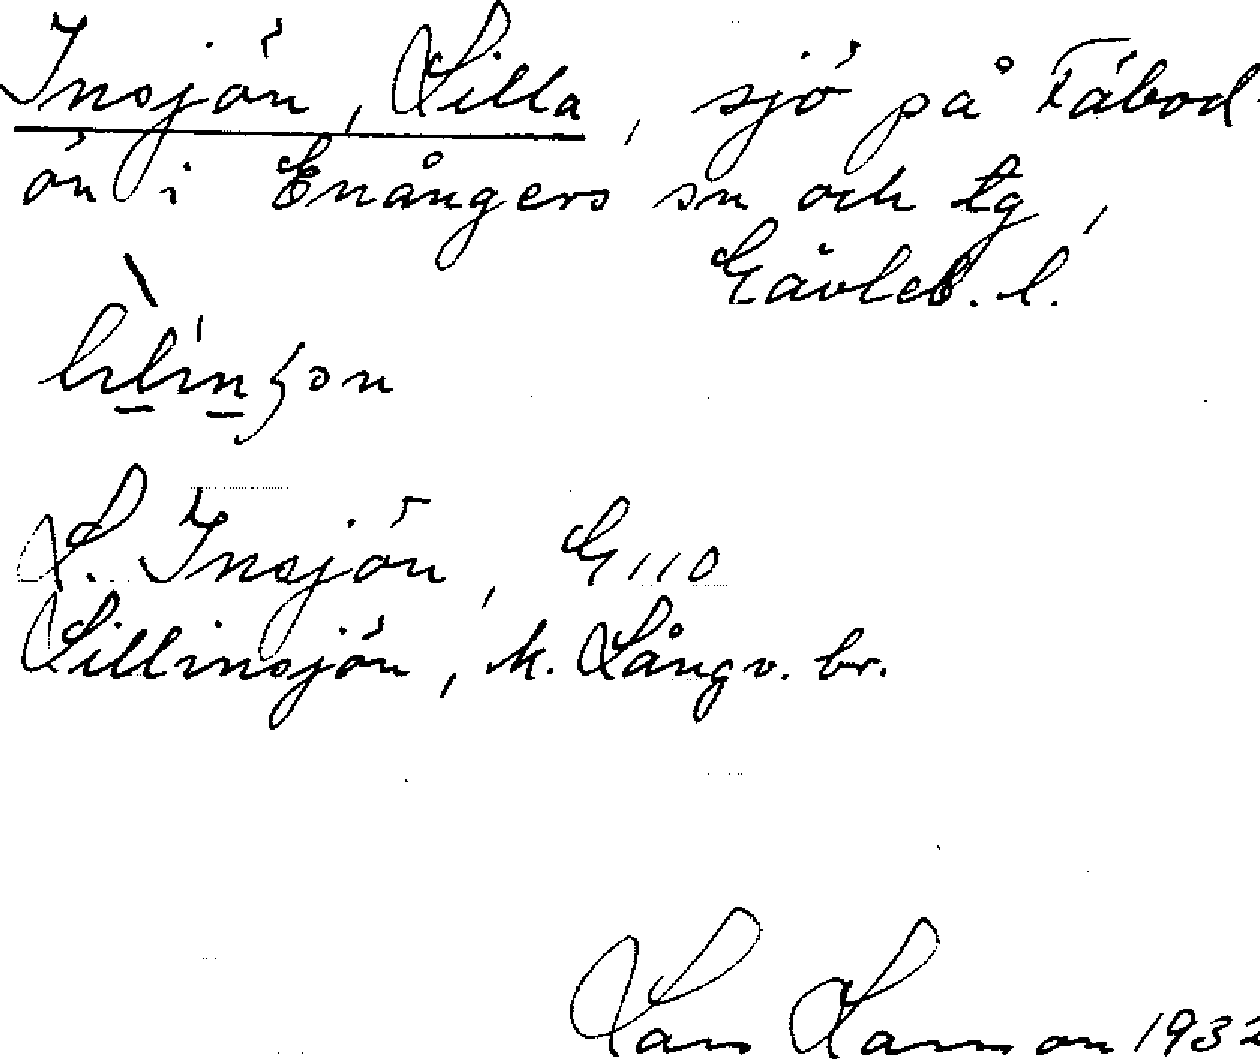 Insjön, Lilla, sjö på Fäbod-
ön i Enångers sn och tg,
Gävleb. l.
L. Insjön, G 110
Lillinsjön, k. Långv. br.
Lars Larsson 1932